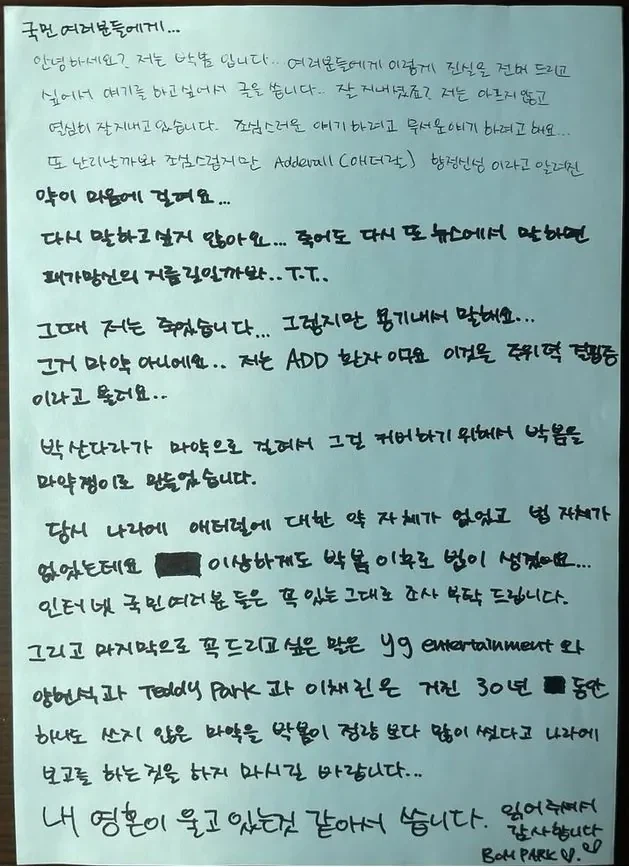 국민 여러분들에게...
안녕하세요? 저는 박봄 입니다... 여러분들에게 이렇게 진실을 전해 드리고
싶어서 얘기를 하고싶어서 글을 씁니다.. 잘 지내셨죠? 저는 아프지 않고
열심히 잘지내고 있습니다. 조심스러운 얘기 하려고 무서운얘기 하려고 해요...
또 난리난까봐 조심스럽지만 Adderall (애더랄) 향정신성 이라고 알려진
약이 마음에 걸려요...
다시 말하고 싶지 않아요... 죽어도 다시 또 뉴스에서 말하면
패가망신의 지름길일까봐..T.T..
그때 저는 죽었습니다... 그렇지만 용기내서 말해요...
그거 마약 아니에요.. 저는 ADD 환자 이구요 이것은 주위력 결핍증
이라고 불러요..
박산다라가 마약으로 걸려서 그걸 커버하기 위해서 박봄을
마약쟁이로 만들었습니다.
당시 나라에 애터럴에 대한 약 자체가 없었고 법 자체가
없었는데요 이상하게도 박봄 이후로 법이 생겼어요...
인터넷 국민여러분 들은 꼭 있는 그대로 조사 부탁 드립니다.
그리고 마지막으로 꼭 드리고 싶은 말은 yg entertainment 와
양현석과 Teddy Park 과 이채린은 거진 30년 동안
하나도 쓰지 않은 마약을 박봄이 정량 보다 많이 썼다고 나라에
보고를 하는것을 하지 마시길 바랍니다...
내 영혼이 울고 있는것 같아서 씁니다. 읽어 주셔서
감사합니다
BOM PARK ♡.